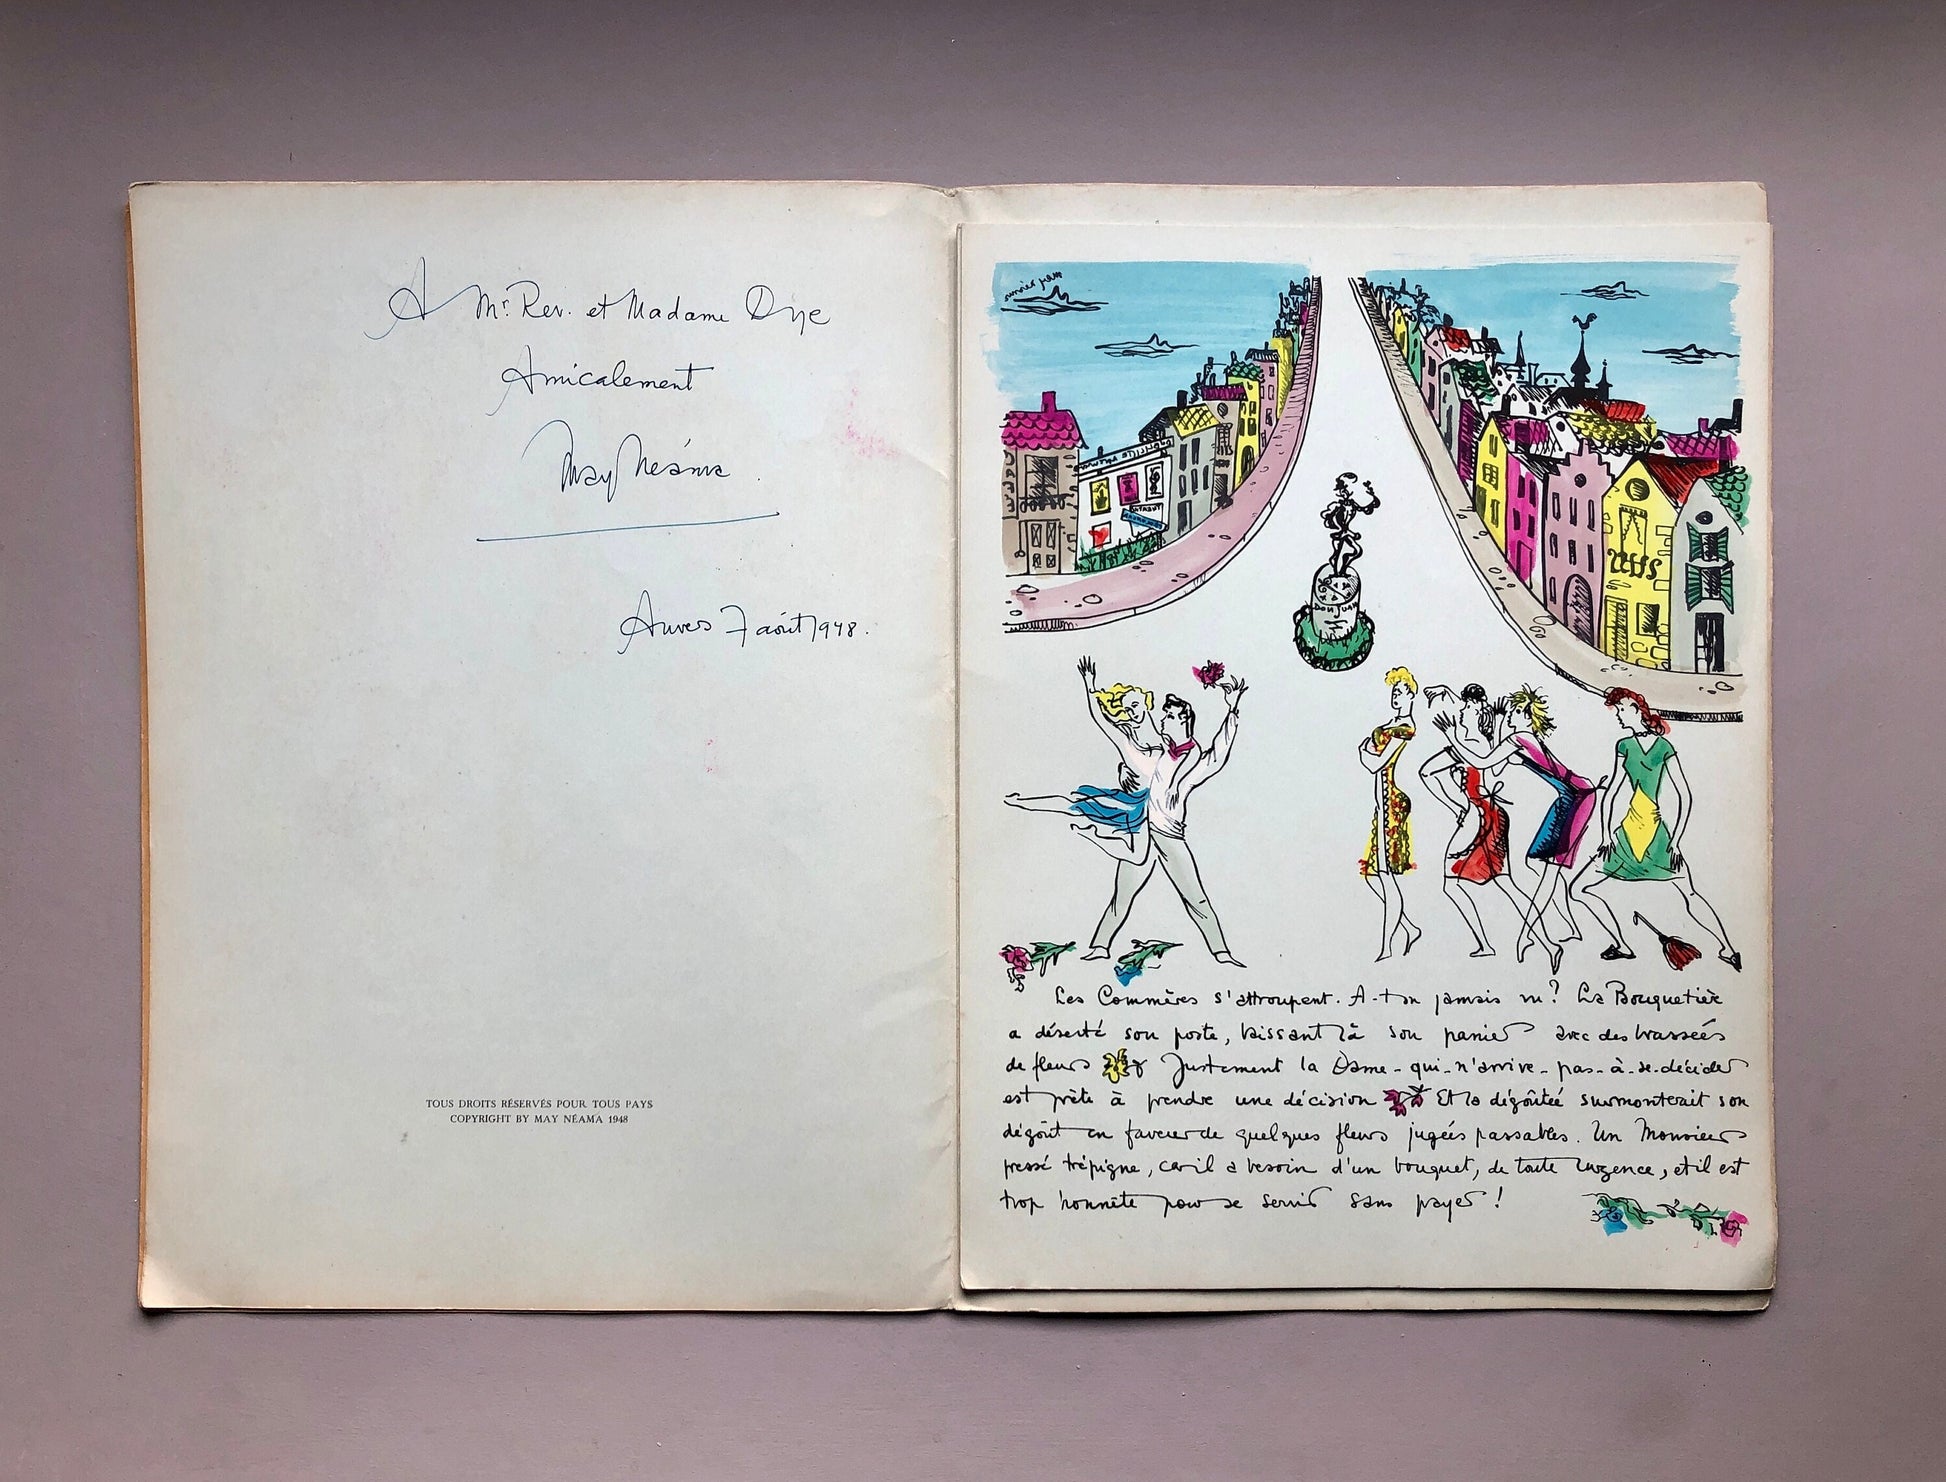 A Mr. Rev. et Madame Dye
Amicalement
May Néama.
Anvers 7 août 1948.
TOUS DROITS RÉSERVÉS POUR TOUS PAYS
COPYRIGHT BY MAY NÉAMA 1948
DON JUAN
Les Commères s'attroupent. A-t-on jamais vu? La Bouquetière
a déserté son poste, laissant là son panier avec des brassées
de fleurs Justement la Dame-qui-n'arrive-pas-à-se-décider
est prête à prendre une décision Et la dégoûtée surmonterait son
dégoût en faveur de quelques fleurs jugées passables. Un Monsieur
pressé trépigne, car il a besoin d'un bouquet, de toute urgence, et il est
trop honnête pour se servir sans payer!